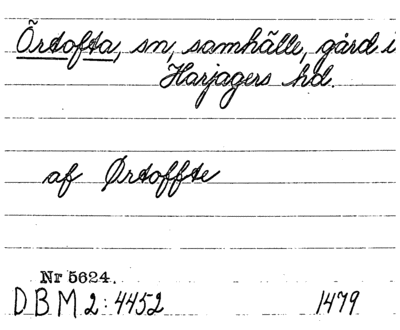 Örtofta, sn, samhälle, gård i
Harjagers hd.
af Ørtoffte
Nr 5624.
DBM 2:4452 1479